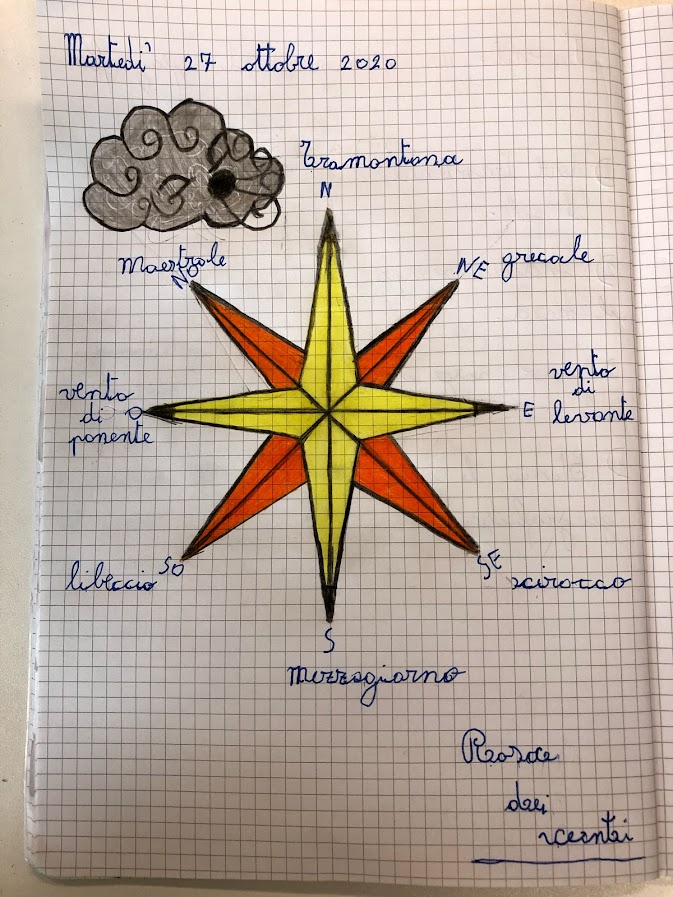 Martedì 27 ottobre 2020
Tramontana
N
Maestrale
NO
NE grecale
vento
di
ponente
O
E
vento
di
levante
libeccio SO
SE scirocco
S
Mezzogiorno
Rosa
dei
venti